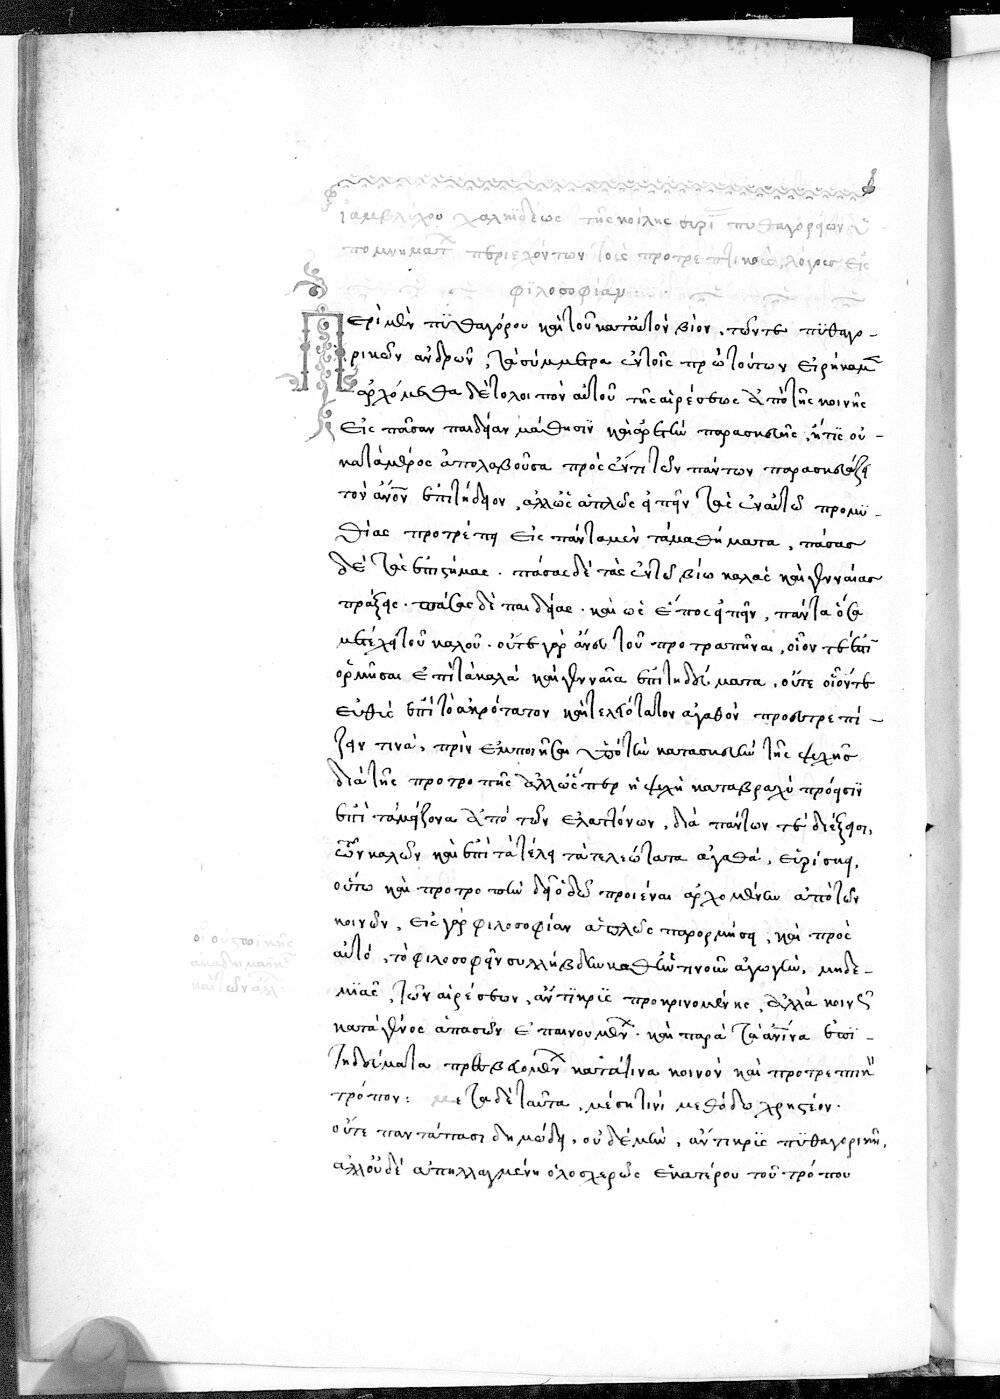 ἰαμβλίχου χαλκιδέως τῆς κοίλης συρί πυθαγορείων ὑ
πομνημάτ περιεχόντων τοὺς προτρεπτικοὺς λόγους εἰς
φιλοσοφίαν
Περὶ μὲν πυθαγόρου καὶ τοῦ κατ' αὐτὸν βίου, τῶν τε πυθαγο-
ρικῶν ἀνδρῶν, τὰ σύμμετρα ἐν τοῖς πρὸ τούτων εἰρήκαμ
ἀρχόμεθα δὲ τὸ λοιπὸν αὐτοῦ τῆς αἱρέσεως ἀπὸ τῆς κοινῆς
εἰς πᾶσαν παιδείαν μάθησιν καὶ ἀρετὴν παρασκευῆς, ἥτις οὐ-
κατὰ μέρος ἀπολαβοῦσα πρὸς ἕν τι τῶν πάντων παρασκευάζει
τὸν ἄνον ἐπιτήδειον, ἀλλ' ὡς ἁπλῶς εἰπεῖν τὰς ἐν αὐτῷ προμη-
θίας προτρέπει εἰς πάντα μὲν τὰ μαθήματα, πάσας
δὲ τὰς ἐπιστήμας. πάσας δὲ τὰς ἐν τῷ βίῳ καλὰς καὶ γενναίας
πράξεις. πάσας δὲ παιδείας. καὶ ὡς ἔπος εἰπεῖν, πάντα ὅσα
μετέχει τοῦ καλοῦ. οὔτε γὰρ ἄνευ τοῦ προτραπῆναι, οἷόν τε ἐπὶ
ὁρμῆσαι ἐπὶ τὰ καλὰ καὶ γενναῖα ἐπιτηδεύματα, οὔτε οἷόν τε
εὐθὺς ἐπὶ τὸ ἀκρότατον καὶ τελεότατον ἀγαθὸν προευτρεπί-
ζειν τινά, πρὶν ἐμποιῆσαι αὐτῷ τὴν κατασκευὴν τῆς ψυχῆς
διὰ τῆς προτροπῆς ἀλλ' ὥσπερ ἡ ψυχὴ καταβραχὺ πρόεισιν
ἐπὶ τὰ μείζονα ἀπὸ τῶν ἐλαττόνων, διὰ πάντων τε διέξεισι,
τῶν καλῶν καὶ ἐπὶ τὰ τέλη τὰ τελεώτατα ἀγαθά, εὑρίσκει,
οὕτω καὶ προτροπὴν δεῖ ὁδῷ προιέναι ἀρχομένην ἀπὸ τῶν
κοινῶν, εἰς γὰρ φιλοσοφίαν ἁπλῶς παρορμήσει, καὶ πρὸς
αὐτό, τὸ φιλοσοφεῖν συλλήβδην καθ' ἡντινοῦν ἀγωγήν, μηδε-
μίας, τῶν αἱρέσεων, ἄντικρυς προκρινομένης, ἀλλὰ κοινῶς
κατὰ γένος ἁπασῶν ἐπαινουμέν. καὶ παρὰ τὰ ἀνίνα ἐπι-
τηδεύματα πρεσβευομέν κατά τινα κοινὸν καὶ προτρεπτικὸν
τρόπον: μετὰ δὲ ταῦτα, μέσῃ τινὶ μεθόδῳ χρηστέον.
οὔτε παντάπασι δημώδει, οὐδὲ μὴν, ἄντικρυς πυθαγορικῇ,
ἀλλ' οὐδὲ ἀπηλλαγμένῃ ὁλοσχερῶς ἑκατέρου τοῦ τρόπου